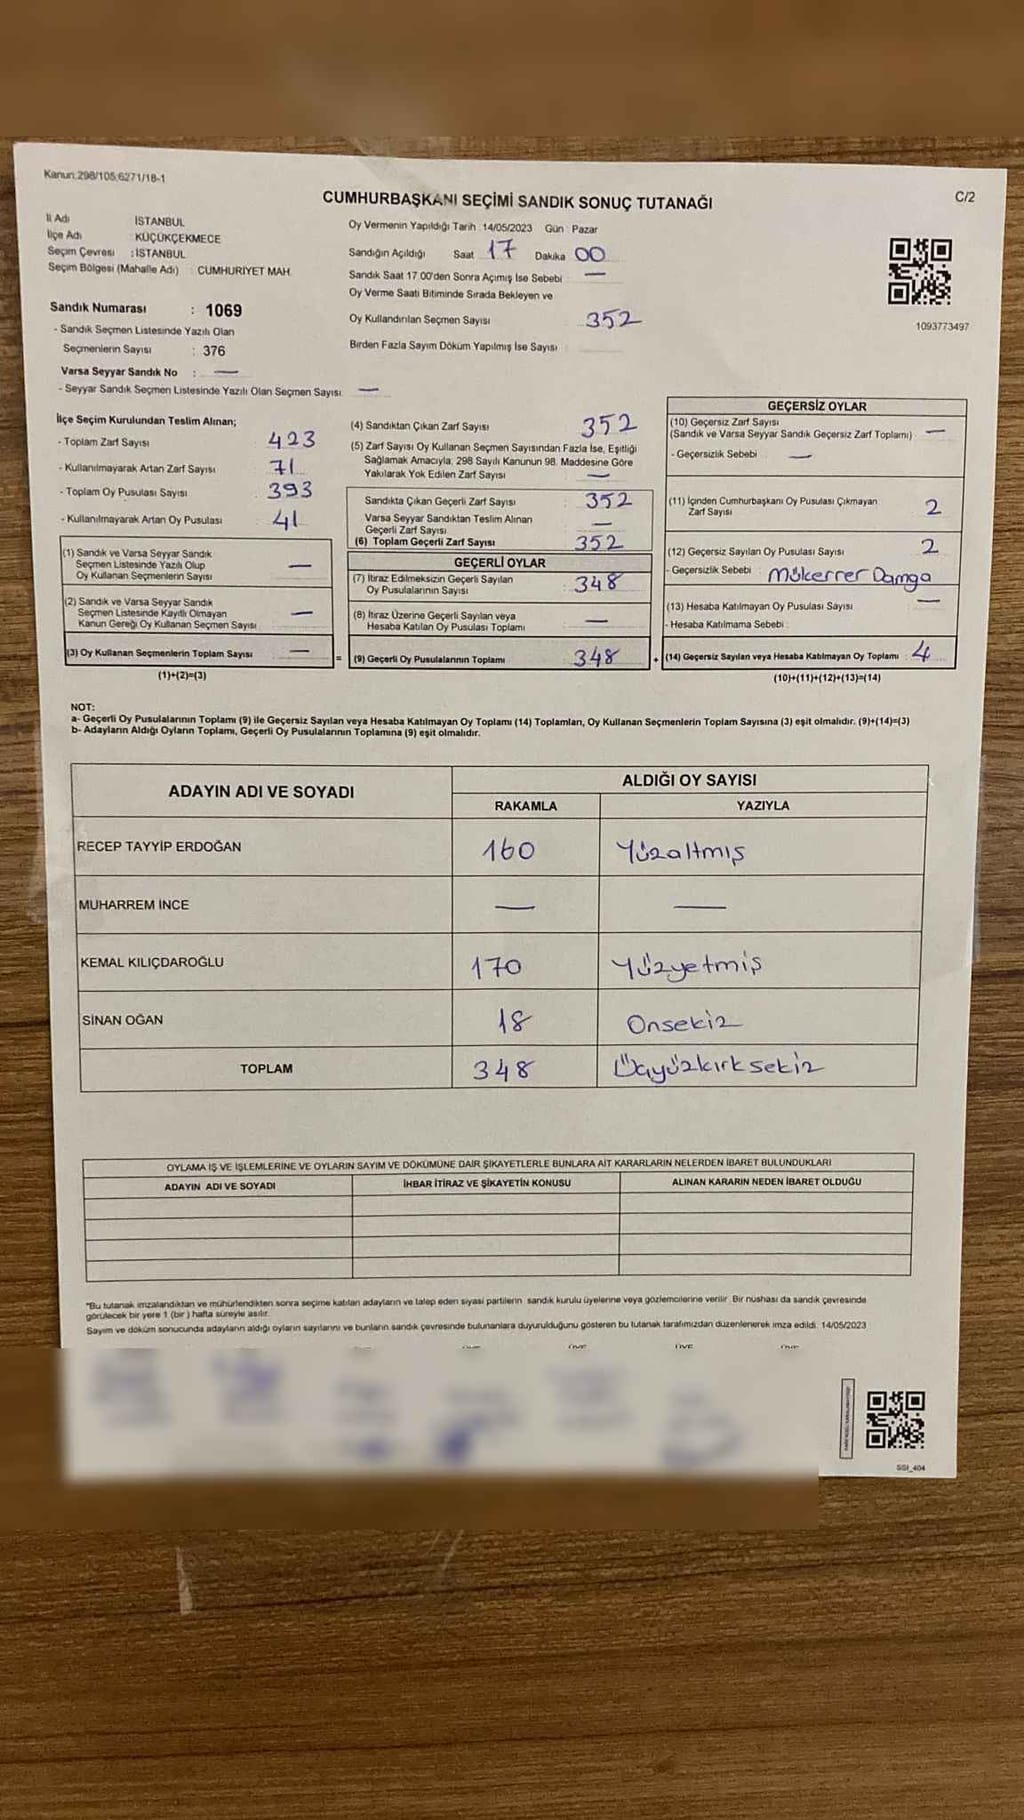 Kanun:298/105;6271/18-1
CUMHURBAŞKANI SEÇİMİ SANDIK SONUÇ TUTANAĞI
C/2
İl Adı İSTANBUL
İlçe Adı KÜÇÜKÇEKMECE
Seçim Çevresi : İSTANBUL
Seçim Bölgesi (Mahalle Adı) : CUMHURİYET MAH.
Oy Vermenin Yapıldığı Tarih : 14/05/2023 Gün : Pazar
Sandığın Açıldığı Saat 17 Dakika 00
Sandık Saat 17.00'den Sonra Açımış İse Sebebi —
Oy Verme Saati Bitiminde Sırada Bekleyen ve
Oy Kullandırılan Seçmen Sayısı 352
Birden Fazla Sayım Döküm Yapılmış İse Sayısı
1093773497
Sandık Numarası : 1069
- Sandık Seçmen Listesinde Yazılı Olan
Seçmenlerin Sayısı : 376
Varsa Seyyar Sandık No : —
- Seyyar Sandık Seçmen Listesinde Yazılı Olan Seçmen Sayısı: —
İlçe Seçim Kurulundan Teslim Alınan;
- Toplam Zarf Sayısı 423
- Kullanılmayarak Artan Zarf Sayısı 71
- Toplam Oy Pusulası Sayısı 393
- Kullanılmayarak Artan Oy Pusulası 41
(1) Sandık ve Varsa Seyyar Sandık
Seçmen Listesinde Yazılı Olup
Oy Kullanan Seçmenlerin Sayısı —
(2) Sandık ve Varsa Seyyar Sandık
Seçmen Listesinde Kayıtlı Olmayan
Kanun Gereği Oy Kullanan Seçmen Sayısı —
(3) Oy Kullanan Seçmenlerin Toplam Sayısı —
(1)+(2)=(3)
(4) Sandıktan Çıkan Zarf Sayısı 352
(5) Zarf Sayısı Oy Kullanan Seçmen Sayısından Fazla İse, Eşitliği
Sağlamak Amacıyla, 298 Sayılı Kanunun 98. Maddesine Göre
Yakılarak Yok Edilen Zarf Sayısı —
Sandıkta Çıkan Geçerli Zarf Sayısı 352
Varsa Seyyar Sandıktan Teslim Alınan
Geçerli Zarf Sayısı —
(6) Toplam Geçerli Zarf Sayısı 352
GEÇERLİ OYLAR
(7) İtiraz Edilmeksizin Geçerli Sayılan
Oy Pusulalarının Sayısı 348
(8) İtiraz Üzerine Geçerli Sayılan veya
Hesaba Katılan Oy Pusulası Toplamı —
= (9) Geçerli Oy Pusulalarının Toplamı 348
GEÇERSİZ OYLAR
(10) Geçersiz Zarf Sayısı
(Sandık ve Varsa Seyyar Sandık Geçersiz Zarf Toplamı) —
- Geçersizlik Sebebi —
(11) İçinden Cumhurbaşkanı Oy Pusulası Çıkmayan
Zarf Sayısı 2
(12) Geçersiz Sayılan Oy Pusulası Sayısı 2
- Geçersizlik Sebebi : Mükerrer Damga
(13) Hesaba Katılmayan Oy Pusulası Sayısı —
- Hesaba Katılmama Sebebi :
+ (14) Geçersiz Sayılan veya Hesaba Katılmayan Oy Toplamı : 4
(10)+(11)+(12)+(13)=(14)
NOT:
a- Geçerli Oy Pusulalarının Toplamı (9) ile Geçersiz Sayılan veya Hesaba Katılmayan Oy Toplamı (14) Toplamları, Oy Kullanan Seçmenlerin Toplam Sayısına (3) eşit olmalıdır. (9)+(14)=(3)
b- Adayların Aldığı Oyların Toplamı, Geçerli Oy Pusulalarının Toplamına (9) eşit olmalıdır.
ADAYIN ADI VE SOYADI
ALDIĞI OY SAYISI
RAKAMLA YAZIYLA
RECEP TAYYİP ERDOĞAN 160 Yüzaltmış
MUHARREM İNCE — —
KEMAL KILIÇDAROĞLU 170 Yüzyetmiş
SİNAN OĞAN 18 Onsekiz
TOPLAM 348 Üçyüzkırksekiz
OYLAMA İŞ VE İŞLEMLERİNE VE OYLARIN SAYIM VE DÖKÜMÜNE DAİR ŞİKAYETLERLE BUNLARA AİT KARARLARIN NELERDEN İBARET BULUNDUKLARI
ADAYIN ADI VE SOYADI İHBAR İTİRAZ VE ŞİKAYETİN KONUSU ALINAN KARARIN NEDEN İBARET OLDUĞU
*Bu tutanak imzalandıktan ve mühürlendikten sonra seçime katılan adayların ve talep eden siyasi partilerin sandık kurulu üyelerine veya gözlemcilerine verilir. Bir nüshası da sandık çevresinde
görülecek bir yere 1 (bir) hafta süreyle asılır.
Sayım ve döküm sonucunda adayların aldığı oyların sayılarını ve bunların sandık çevresinde bulunanlara duyurulduğunu gösteren bu tutanak tarafımızdan düzenlenerek imza edildi. 14/05/2023
SSI_404